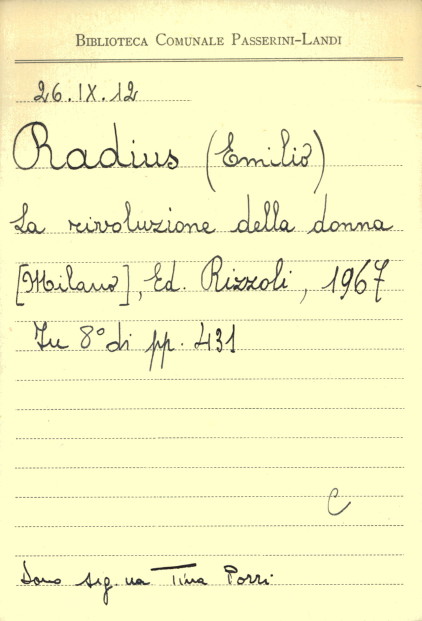 BIBLIOTECA COMUNALE PASSERINI-LANDI
26.IX.12
Radius (Emilio)
La rivoluzione della donna
[Milano], Ed. Rizzoli, 1967
In 8° di pp. 431
C
Dono sig.na Tina